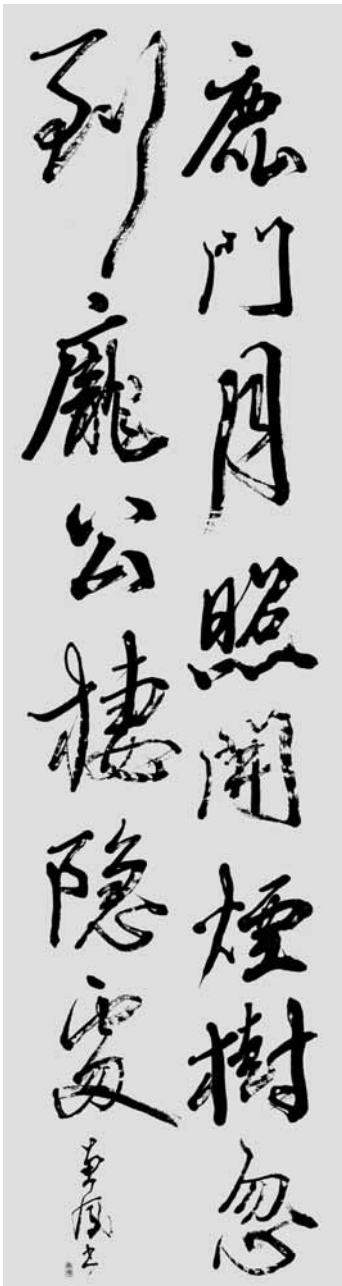 鹿門月照開煙樹忽
到龐公棲隱處